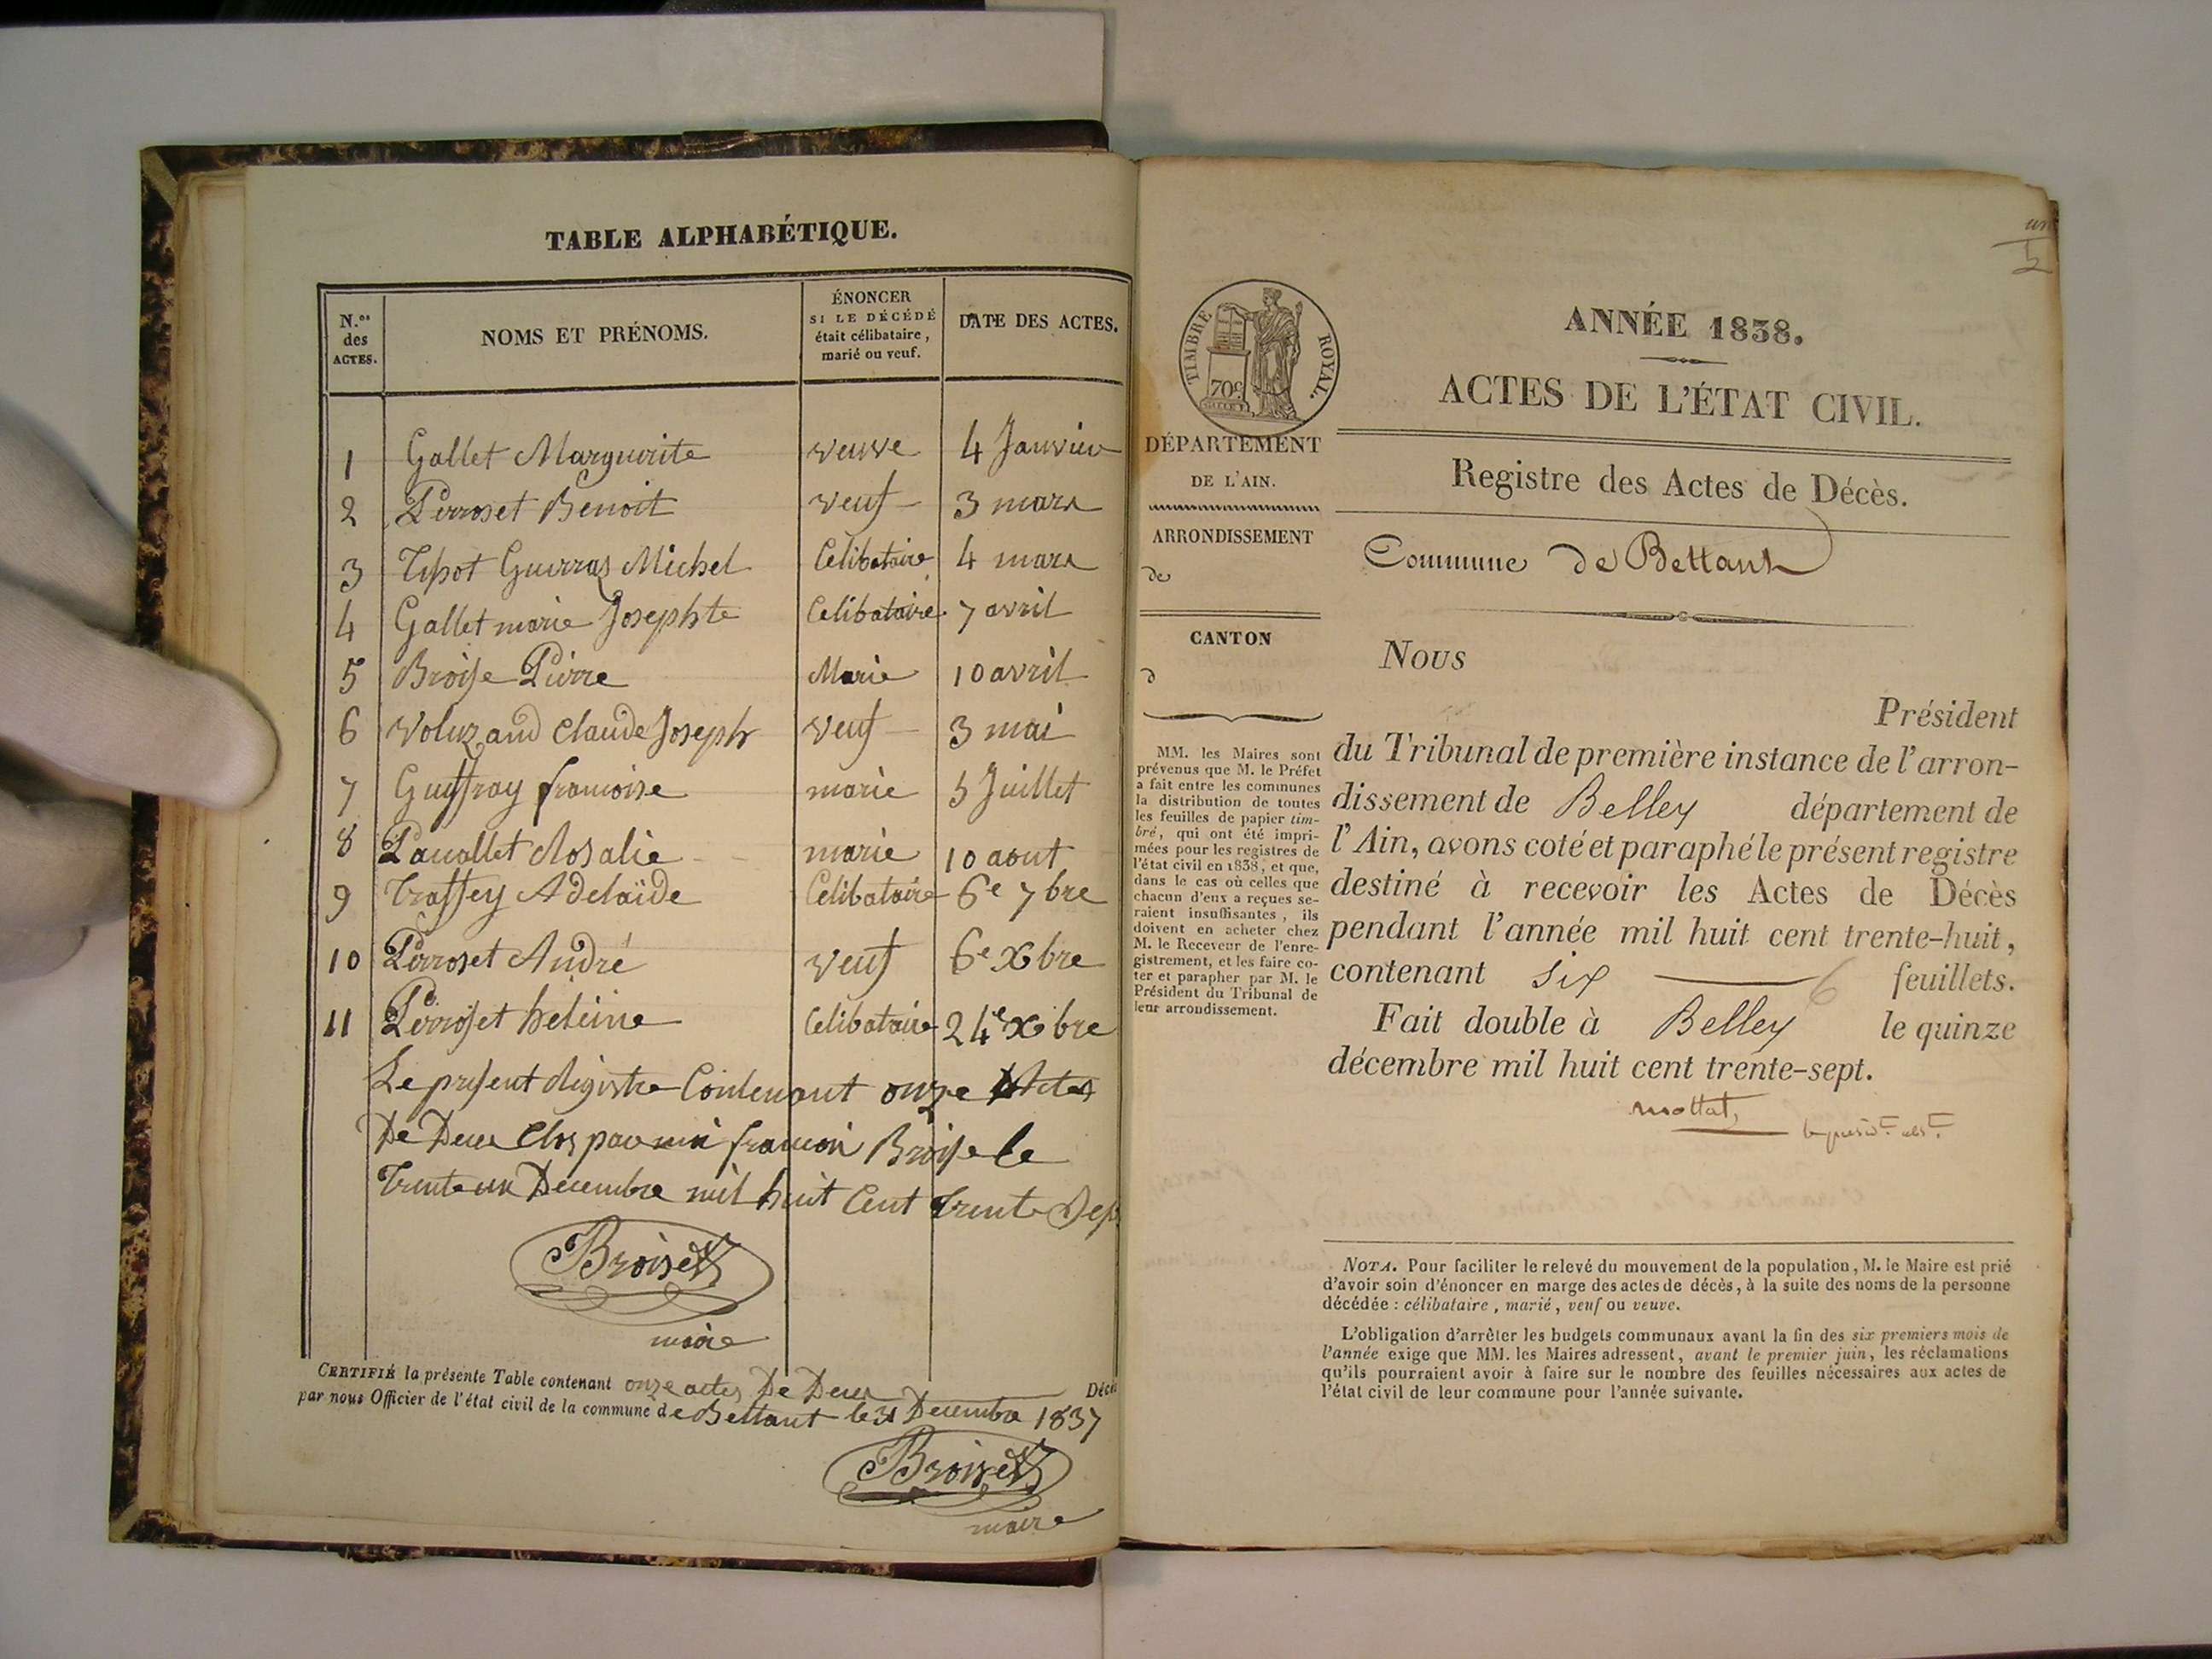 TABLE ALPHABÉTIQUE.
N.os des ACTES.
NOMS ET PRÉNOMS.
ÉNONCER
SI LE DÉCÉDÉ
était célibataire,
marié ou veuf.
DATE DES ACTES.
1 Gallet Marguerite veuve 4 Janvier
2 Perroset Benoit veuf 3 mars
3 Tipot Guerras Michel Celibataire 4 mars
4 Gallet marie Josephte Celibataire 7 avril
5 Broise Pierre Marie 10 avril
6 Voluzand Claude Joseph veuf 3 mai
7 Guffray francoise marie 5 Juillet
8 Pauallet Rosalie marie 10 aout
9 Traffey Adelaïde Celibataire 6e 7bre
10 Perroset André veuf 6e Xbre
11 Perroset heleine Celibataire 24e Xbre
Le present Registre Contenant onze Actes
De Deces Clos par moi francoi Broise le
Trente un Decembre mil huit Cent Trente Sep
Broiset
maire
CERTIFIÉ la présente Table contenant onze actes De Deces Décè
par nous Officier de l'état civil de la commune de Bettant le 31 Decembre 1837
Broiset
maire
un
TIMBRE ROYAL.
70c
ANNÉE 1838.
ACTES DE L'ÉTAT CIVIL.
DÉPARTEMENT
DE L'AIN.
Registre des Actes de Décès.
ARRONDISSEMENT
de
Commune de Bettant
CANTON
d
Nous
Président
du Tribunal de première instance de l'arron-
dissement de Belley département de
l'Ain, avons coté et paraphé le présent registre
destiné à recevoir les Actes de Décès
pendant l'année mil huit cent trente-huit,
contenant six 6 feuillets.
Fait double à Belley le quinze
décembre mil huit cent trente-sept.
mottat,
MM. les Maires sont
prévenus que M. le Préfet
a fait entre les communes
la distribution de toutes
les feuilles de papier tim-
bré, qui ont été impri-
mées pour les registres de
l'état civil en 1838, et que,
dans le cas où celles que
chacun d'eux a reçues se-
raient insuffisantes, ils
doivent en acheter chez
M. le Receveur de l'enre-
gistrement, et les faire co-
ter et parapher par M. le
Président du Tribunal de
leur arrondissement.
NOTA. Pour faciliter le relevé du mouvement de la population, M. le Maire est prié
d'avoir soin d'énoncer en marge des actes de décès, à la suite des noms de la personne
décédée : célibataire, marié, veuf ou veuve.
L'obligation d'arrêter les budgets communaux avant la fin des six premiers mois de
l'année exige que MM. les Maires adressent, avant le premier juin, les réclamations
qu'ils pourraient avoir à faire sur le nombre des feuilles nécessaires aux actes de
l'état civil de leur commune pour l'année suivante.